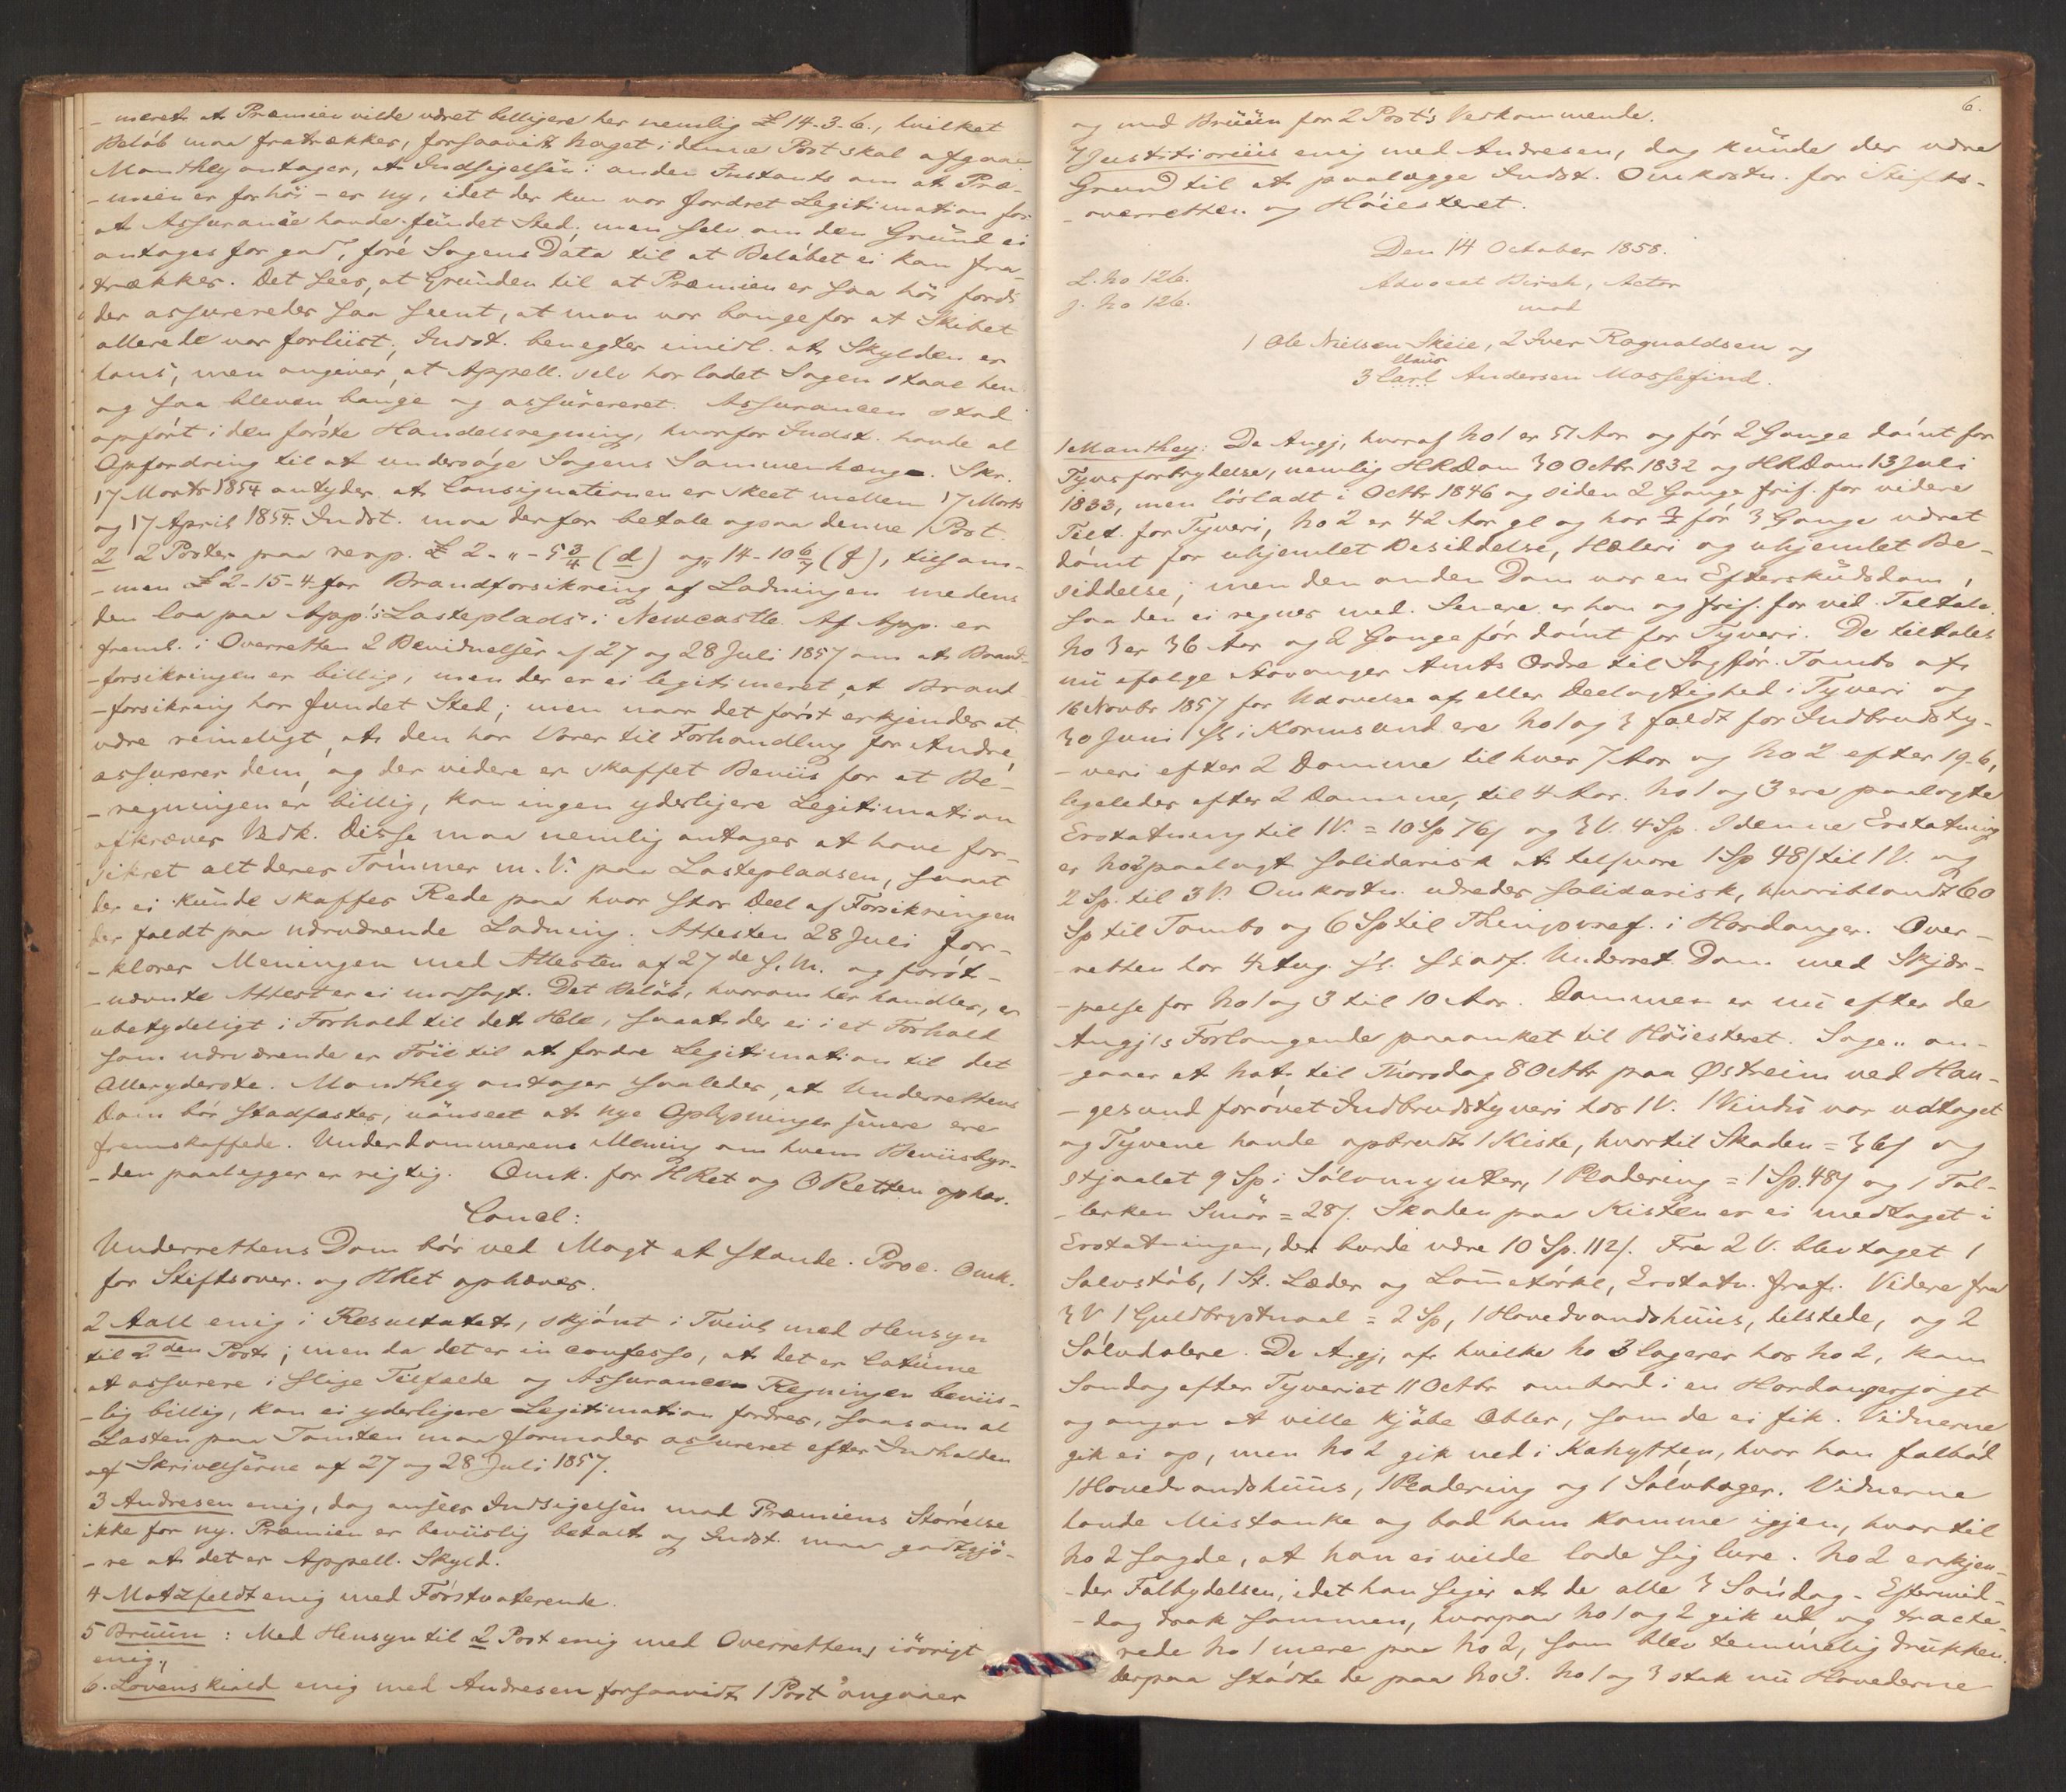 -meret at Præmien vilde været billigere her nemlig £ 14-3-6., hvilket
Beløb maa fratrækkes, forsaavidt Noget i denne Post skal afgaae
Manthey antager, at Indsigelsen i anden Instants om at Præ-
-mien er forhøi - er ny, idet der kun var fordret Legitimation for
at Assurance havde fundet Sted; men selv om den Grund ei
antages for god, före Sagens Data til at Beløbet ei kan fra-
trækkes. Det sees, at Grunden til at Præmien er saa høi fordi
der assureredes saa seent, at man var bange for at Skibet
allerede var forliist; Indst. benegter imidl. at Skylden er
hans, men angiver, at Appell. selv har ladet Sagen staae hen
og saa bleven bange og assüreret. Assurancen stod
opført i den første Handelsregning, hvorfor Indst. havde al
Opfordring til at undersøge Sagens Sammenhæng. Skr.
17 Marts 1854 antyder at Consignationen er skeet mellem 17 Marts
og 17 April 1854. Indst. maa derfor betale ogsaa denne Post.
2 2 Poster paa resp. £ 2-"-5 3/4 (d) og " 14-10 6/7 (f), tilsam-
-men £ 2-15-4 for Brandforsikring af Ladningen medens
den laa paa App's Lasteplads i Newcastle. Af App. er
freml. i Overretten 2 Bevidnelser af 27 og 28 Juli 1857 om at Brand-
-forsikringen er billig, men der er ei legitimeret at Brand-
-forsikring har fundet Sted; men naar det først erkjendes at
være rimeligt, at den har Varer til Forhandling for Andre,
assurerer dem, og der videre er skaffet Beviis for at Be-
-regningen er billig, kan ingen yderligere Legitimation
afkræves Vedk. Disse maa nemlig antages at have for-
sikret alt deres Tømmer m. V. paa Lastepladsen, saaat
der ei kunde skaffes Rede paa hvor stor Deel af Forsikringen
der faldt paa nærværende Ladning. Attesten 28 Juli for-
-klarer Meningen med Attesten af 27de s. M. og först-
-nævnte Attest er ei modsagt. Det Beløb, hvorom her handles, er
ubetydeligt i Forhold til det Hele, saaat der ei i et Forhold
som nærværende er Föie til at fordre Legitimation til det
Alleryderste. Manthey antager saaledes, at Underrettens
Dom bör stadfæstes, uanseet at nye Oplysninger senere ere
fremskaffede. Underdommerens Mening om hvem Beviisbyr-
-den paalægger er rigtig. Omk. for HRet og ORetten ophæv.
Concl:
Underrettens Dom bør ved Magt at stande. Proc. Omk.
for Stiftsover. og HRet ophæves.
2 Aall enig i Resultatet, skjønt i Tvivl med Hensyn
til 2den Post; men da det er in confesso, at det er Coutüme
at assurere i slige Tilfælde og Assurancen Regningen beviis-
-lig billig, kan ei yderligere Legitimation fordres, saasom al
Lasten paa Tomten maa formodes assureret efter Indholden
af Skrivelserne af 27 og 28 Juli 1857.
3 Andresen enig, dog ansees Indsigelsen mod Præmiens Størrelse
ikke for ny. Præmien er beviislig betalt og Indst. maa godtgjø-
-re at det er Appell. Skyld.
4 Motzfeldt enig med Førstvoterende.
5 Brüün: Med Hensyn til 2 Post enig med Overretten, iøvrigt
enig.,
6. Løvenskiold enig med Andresen forsaavidt 1 Post angaaer
6.
og med Brüün for 2 Post's Vedkommende.
7 Justitiariüs enig med Andresen, dog künde der være
Grund til at paalægge Indst. Omkostn. for Stifts-
-overretten og Høiesteret.
Den 14 October 1858.
L. No 126.
J. No 126.
Advocat Birch, Actor
mod
1 Ole Nielsen Skeie, 2 Iver Ragnaldsen og
Claus
3 Carl Andersen Mossefind.
1 Manthey: De Angj, hvoraf No 1 er 57 Aar og før 2 Gange dømt for
Tyvsforbrydelse, nemlig HRDom 30 Octbr 1832 og HRDom 13 Juli
1833, men løsladt i Octbr 1846 og siden 2 Gange frif. for videre
Tilt. for Tyveri, No 2 er 42 Aar gl og har før 3 Gange været
dømt for uhjemlet Besiddelse, Hæleri og uhjemlet Be-
siddelse; men den anden Dom var en Efterskudsdom,
saa den ei regnes med. Senere er han og frif. for vid. Tiltale.
No 3 er 36 Aar og 2 Gange før dømt for Tyveri. De tiltales
nü ifølge Stavanger Amts Ordre til Sagfør. Tambs af
16 Novbr 1857 for Udøvelse af eller Deelagtighed i Tyveri og
30 Juni sl. i Karmsund ere No 1 og 3 fældt for Indbrudsty-
-veri efter 2 Domme til hver 7 Aar og No 2 efter 19-6,
ligeledes efter 2 Domme, til 4 Aar. No 1 og 3 ere paalagte
Erstatning til 1 V. = 10 Sp 76 ß og 3 V. 4 Sp. I denne Erstatning
er No 2 paalagt solidarisk at tilsvare 1 Sp 48 ß til 1 V. og
2 Sp. til 3 V. Omkostn. udredes solidarisk, hvoriblandt 60
Sp til Tambs og 6 Sp til Thingsvref. i Hardanger. Over-
-retten har 4 Aug. sl. stadf. Underret. Dom med Skjær-
-pelse for No 1 og 3 til 10 Aar. Dommen er nü efter de
Angj's Forlangende paaanket til Høiesteret. Sagen an-
-gaaer et Nat til Thorsdag 8 Octbr paa Østreim ved Hau-
-gesund forøvet Indbrudstyveri hos 1 V. 1 Vindü var udtaget
og Tyvene havde opbrudt 1 Kiste, hvortil Skaden = 36 ß og
stjaalet 9 Sp i Sølvmynter, 1 Pladering = 1 Sp. 48 ß og 1 Tal-
-lerken Smør = 28 ß. Skaden paa Kisten er ei medtaget i
Erstatningen, der burde være 10 Sp. 112 ß. Fra 2 V. blev taget 1
Sølvstøb, 1 St. Læder og Lommetørkl, Erstatn. fraf. Videre fra
3 V 1 Guldbrystnaal = 2 Sp, 1 Hovedvandshüüs, tilstede, og 2
Sølvdalere. De Angj, af hvilke No 3 logerer hos No 2, kom
Søndag efter Tyveriet 11 Octbr ombord i en Hardangerjagt
og angav at ville kjøbe Æbler, som de ei fik. Vidnerne
gik ei op, men No 2 gik ned i Kahytten, hvor han falbød
1 Hovedvandshüüs, 1 Pladering og 1 Sølvbæger. Vidnerne
havde Mistanke og bad ham komme igjen, hvortil
No 2 sagde, at han ei vilde lade sig lure. No 2 erkjen-
-der Falbydelsen, idet han siger at de alle 3 Søndag - Eftermid-
-dag drak sammen, hvorpaa No 1 og 2 gik ud og tracte-
rede No 1 mere paa No 2, som blev temmelig drükken.
Derpaa stødte de paa No 3. No 1 og 3 stak nü Hovederne